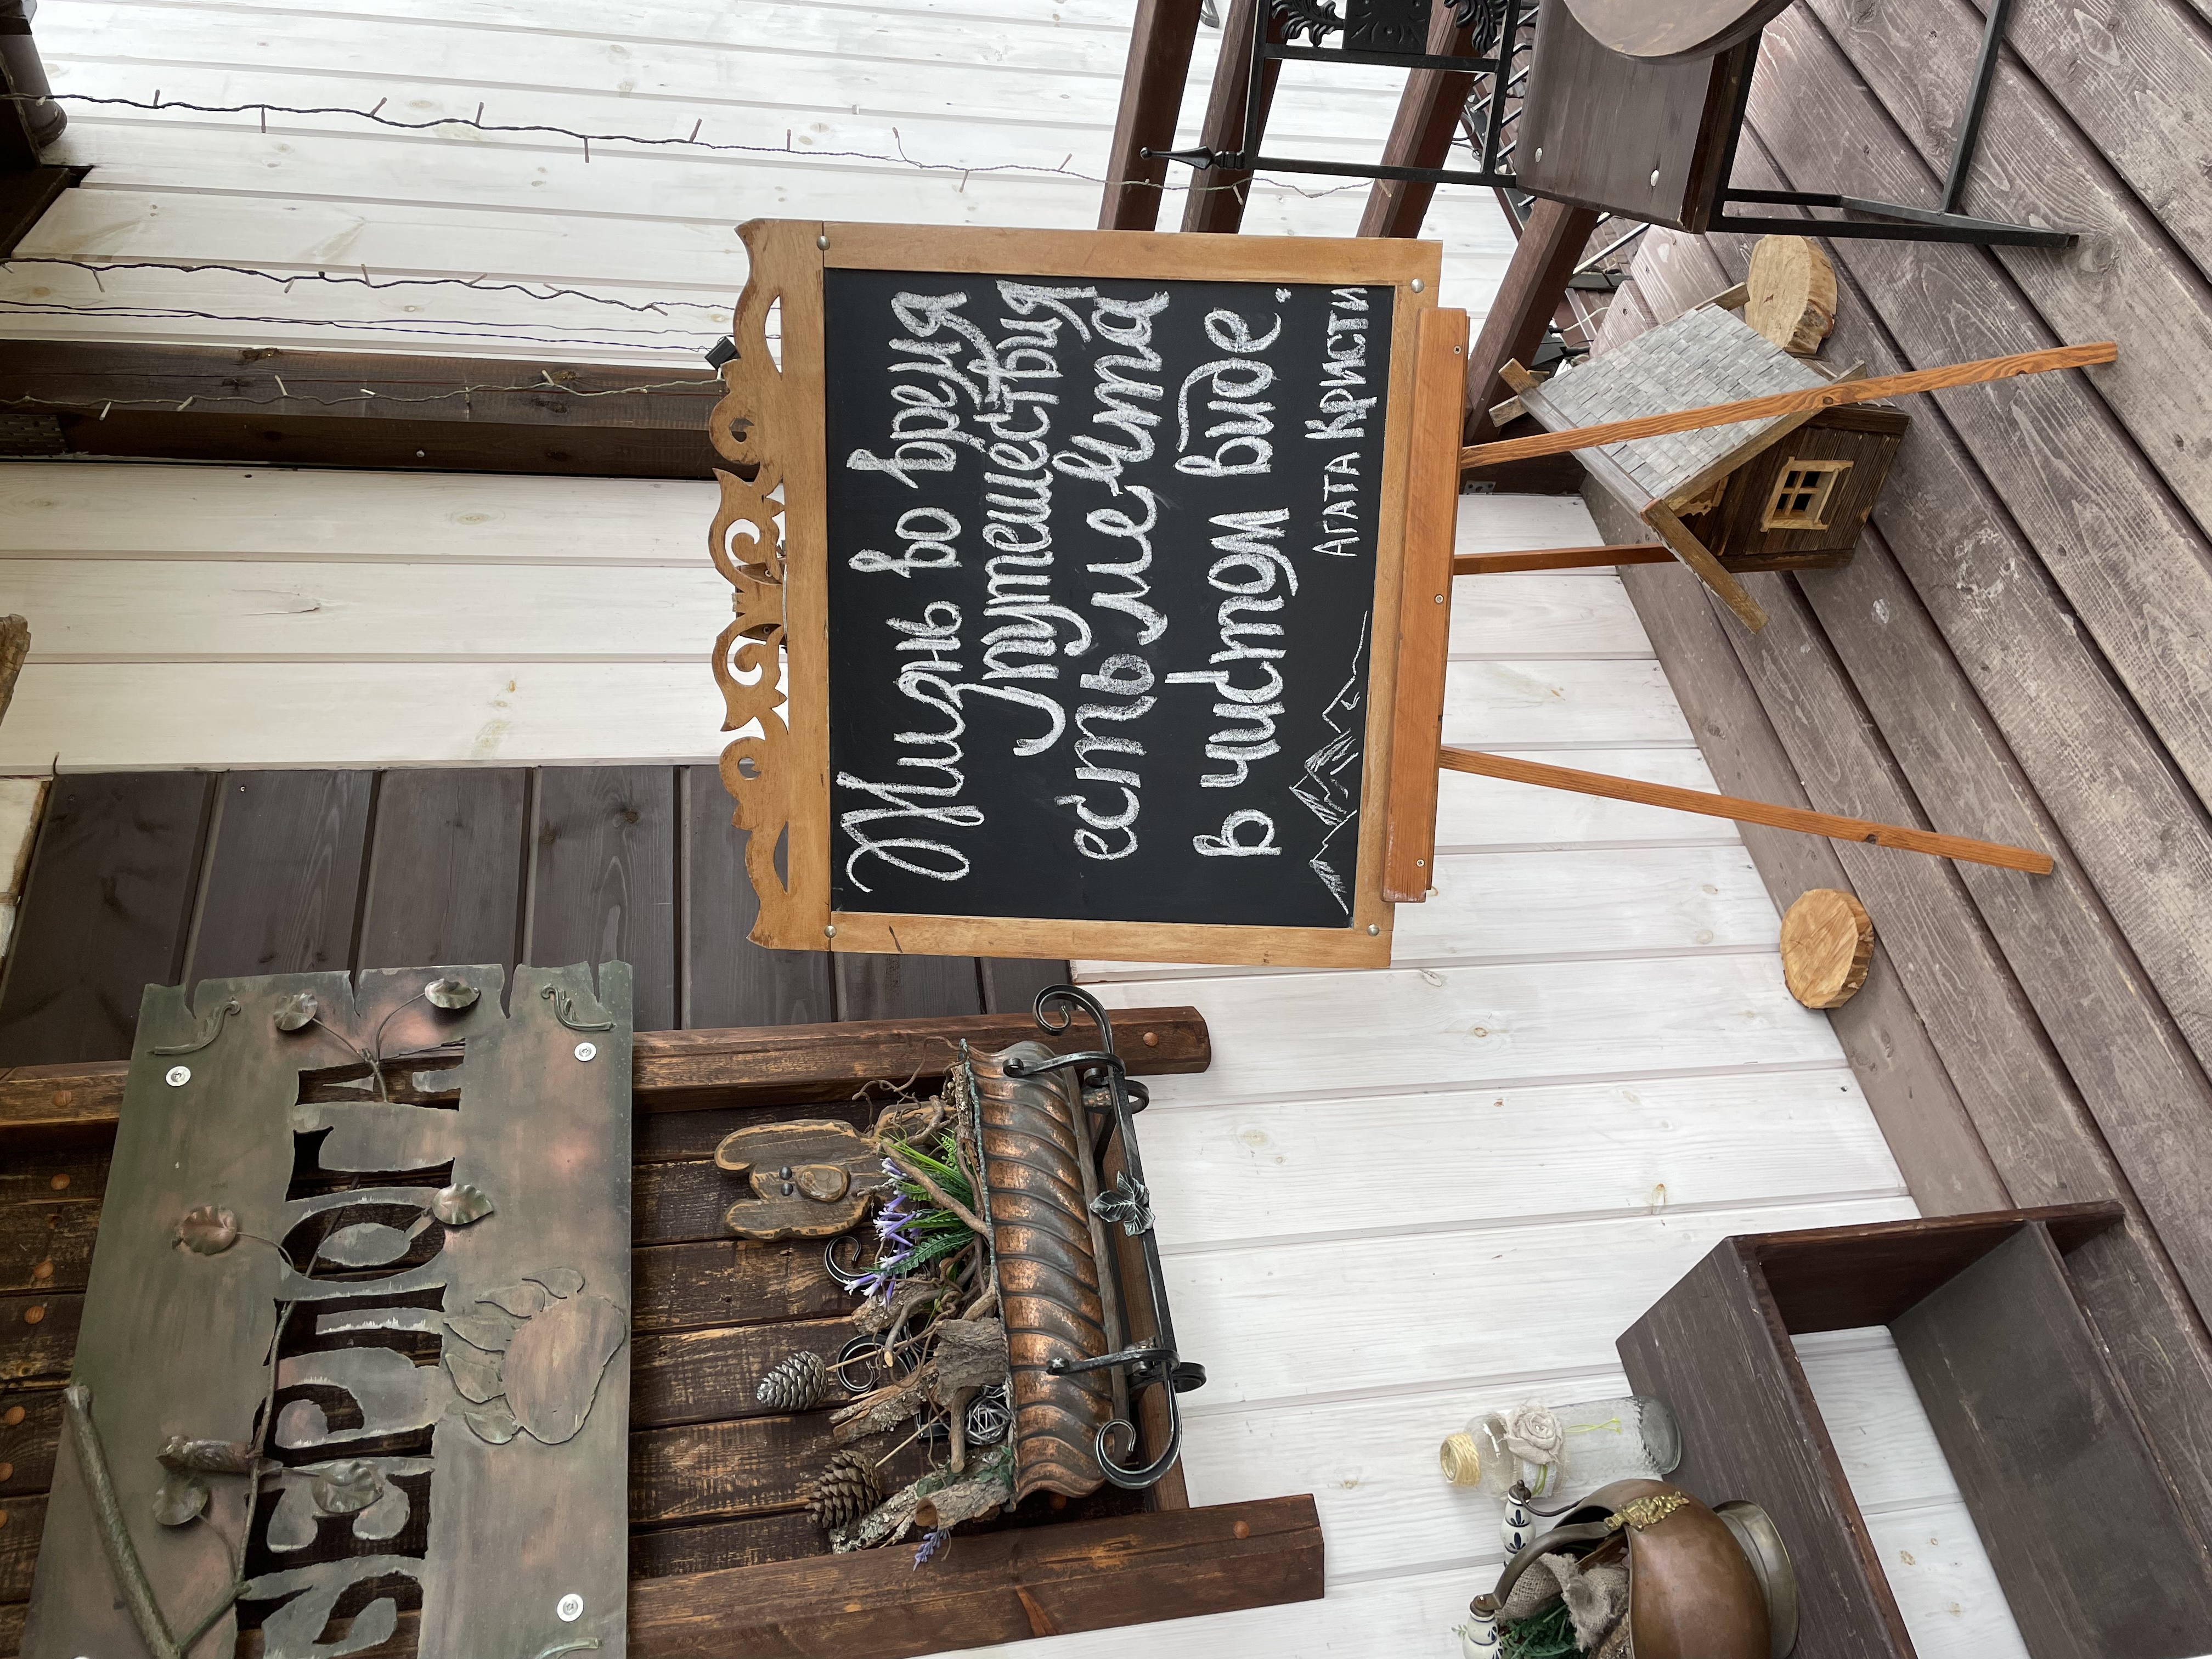 БЕРЛОГА
Жизнь во время
путешествия
есть мечта
в чистом виде.
АГАТА КРИСТИ